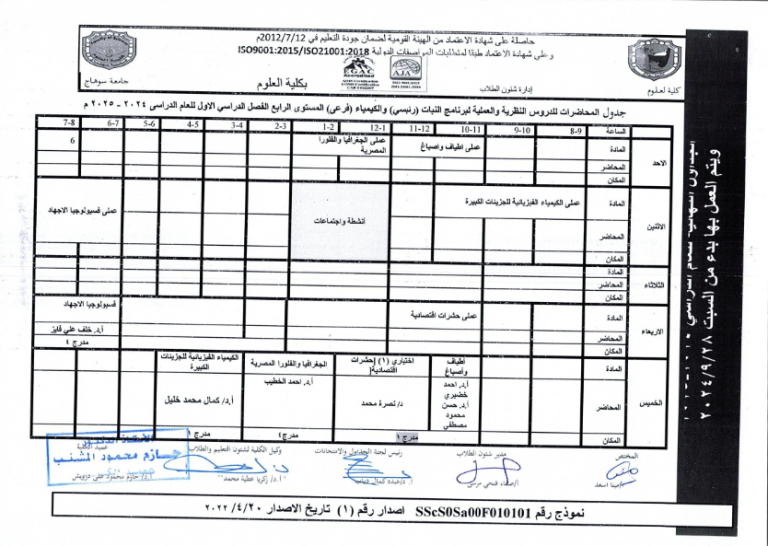 حاصلة على شهادة الاعتماد من الهيئة القومية لضمان جودة التعليم في 2012/7/12م
وعلى شهادة الاعتماد طبقا لمتطلبات المواصفات الدولية ISO9001:2015/ISO21001:2018
EGAC
AJA
كلية العلوم
إدارة شئون الطلاب
بكلية العلوم
جامعة سوهاج
جدول المحاضرات للدروس النظرية والعملية لبرنامج النبات (رئيسي) والكيمياء (فرعى) المستوى الرابع الفصل الدراسي الاول للعام الدراسى ٢٠٢٤ - ٢٠٢٥ م
الساعة 8-9 9-10 10-11 11-12 12-1 1-2 2-3 3-4 4-5 5-6 6-7 7-8
الاحد
المادة عملى اطياف واصباغ عملى الجغرافيا والفلورا المصرية 6
المحاضر
المكان
الاثنين
المادة عملى الكيمياء الفيزيائية للجزيئات الكبيرة أنشطة واجتماعات عملى فسيولوجيا الاجهاد
المحاضر
المكان
الثلاثاء
المادة
المحاضر
المكان
الاربعاء
المادة عملى حشرات اقتصادية فسيولوجيا الاجهاد
المحاضر أ.د. خلف علي فايز
المكان مدرج ٤
الخميس
المادة أطياف وأصباغ اختياري (١) [حشرات اقتصادية] الجغرافيا والفلورا المصرية الكيمياء الفيزيائية للجزيئات الكبيرة
المحاضر أ.د. احمد خضيري أ.د. حسن محمود مصطفى د/ نصرة محمد أ.د. احمد الخطيب أ.د/ كمال محمد خليل
المكان مدرج ١ مدرج ٤ مدرج ١
المختص
مدير شئون الطلاب
رئيس لجنة الجداول والامتحانات
وكيل الكلية لشئون التعليم والطلاب
عميد الكلية
أ.د/ زكريا عطية محمد
أ.د/ حازم محمود على درويش
الأستاذ الدكتور
حازم محمود المشنب
نموذج رقم SScS0Sa00F010101 اصدار رقم (١) تاريخ الاصدار ٢٠/٤/ ٢٠٢٢
ويتم العمل بها بدء من السبت ٢٠٢٤/٩/٢٨